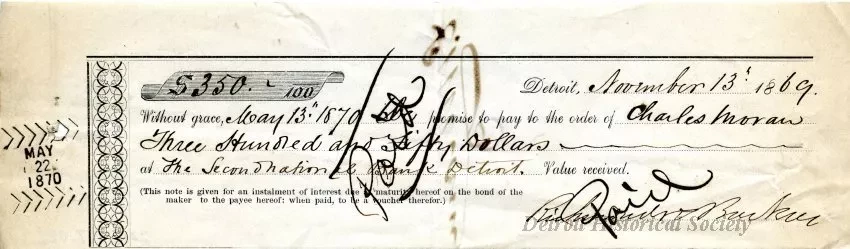 $350.- 100
Detroit, November 13th 1869.
Without grace, May 13th 1870 promise to pay to the order of Charles Moran
Three Hundred and Fifty Dollars
at The Second National Bank Detroit. Value received.
(This note is given for an instalment of interest due at maturity hereof on the bond of the
maker to the payee hereof: when paid, to be a voucher therefor.)
Paid
MAY
22
1870
Detroit Historical Society